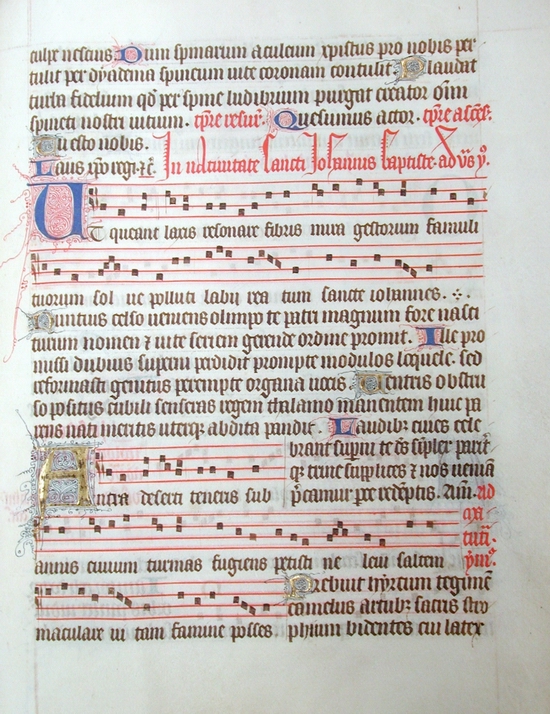 culpe nescius. Dum spinarum aculeum xpistus pro nobis per
tulit per dyadema spineum uite coronam contulit. Plaudat
turba fidelium qd per spine ludibrium purgat creator oim
spineti nostri uitium. tpre resur. Quesumus actor. tpre asces.
Tu esto nobis.
Laus xpo regi. In natiuitate sancti Iohannis baptiste ad vs y.
Ut queant laxis resonare fibris mira gestorum famuli
tuorum sol ue polluti labii rea tum sancte iohannes.
Nuntius celso ueniens olimpo te patri magnum fore nasci
turum nomen & uite seriem gerende ordine promit. Ille pro
missi dubius superni perdidit prompte modulos loquele. sed
reformasti genitus perempte organa uocis. Uentris obstru
so positus cubili senseras regem thalamo manentem hinc pa
rens nati meritis uterque abdita pandit. Laudibus ciues cele
brant superni te ds simplex parit
que trine supplices & nos ueniam
precamur parce redemptis. Am. ad
Antra deserti teneris sub
matuti.
ym.
annis ciuium turmas fugiens petisti ne leui saltem
maculare ui tam famine posses
Prebuit hyrtum tegimen
camelus artubus sacris stro
phium bidentes cui latex